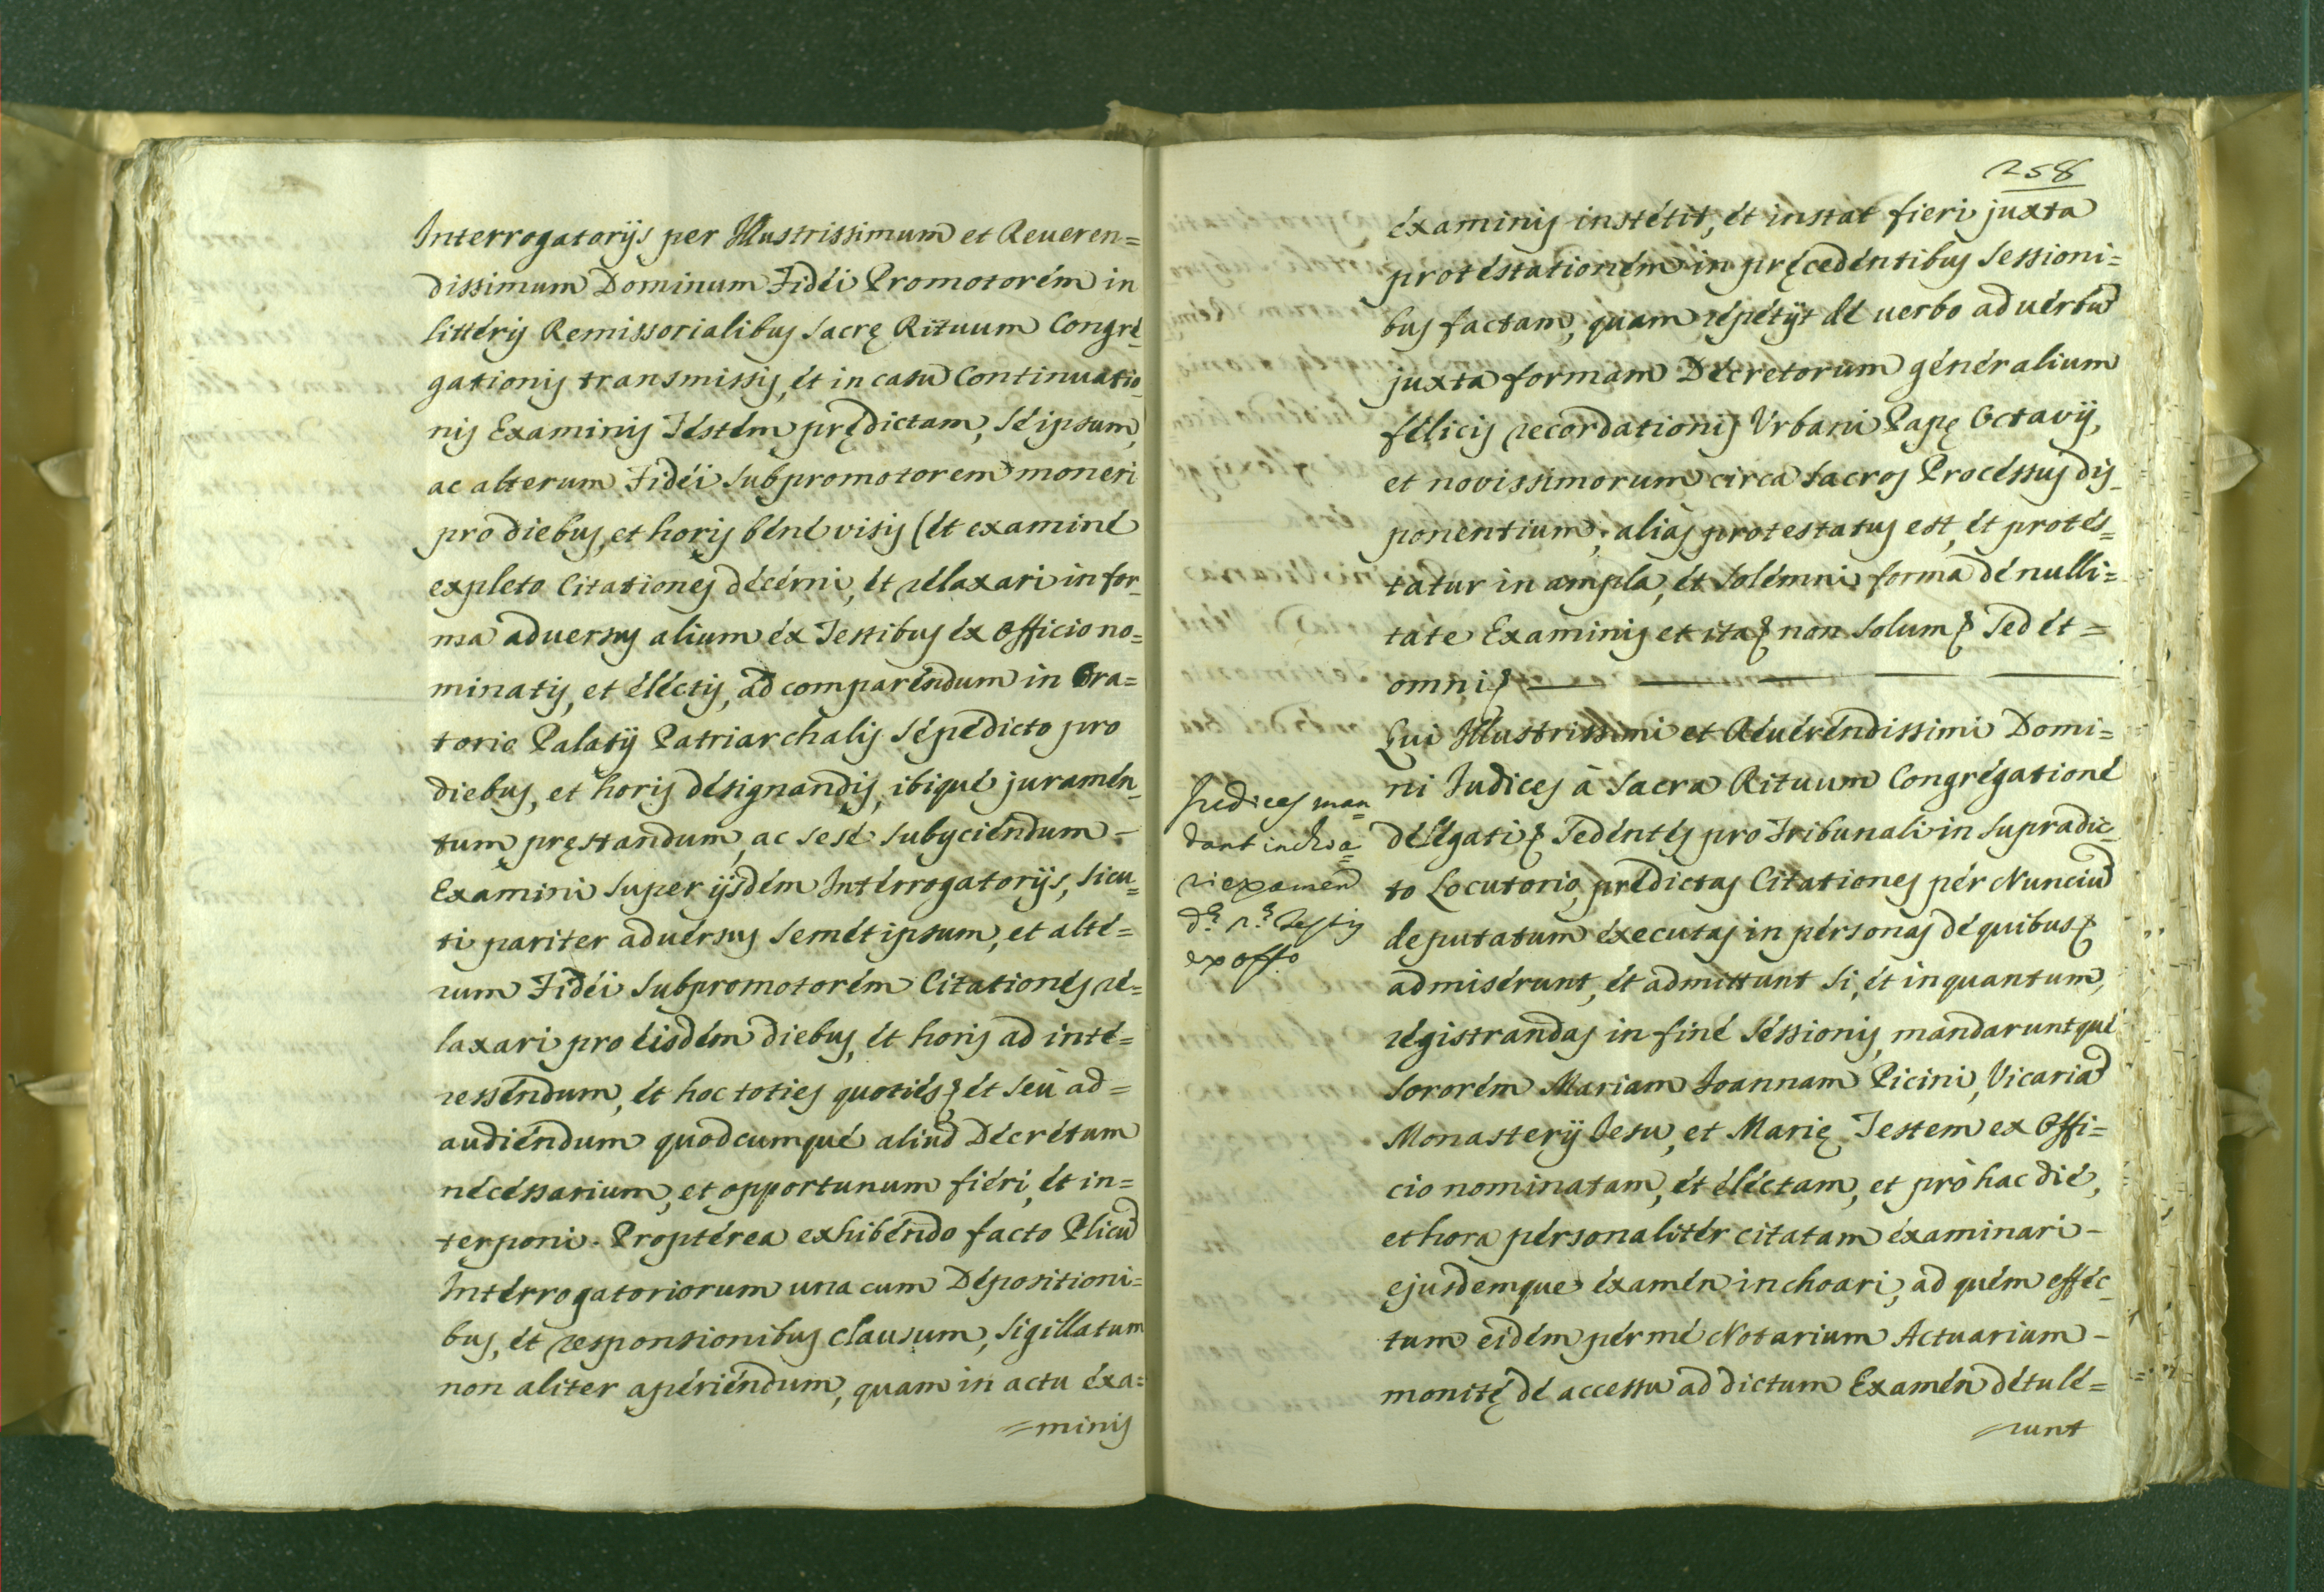 Interrogatorijs per Illustrissimum et Reueren=
dissimum Dominum Fidei Promotorem in
litteris Remissorialibus Sacrę Rituum Congre-
gationis transmissis, et in casu Continuatio-
nis Examinis Testem prędictam, Seipsum,
ac alterum Fidei Subpromotorem moneri
pro diebus, et horis bene visis (et examine
expleto Citationes decerni, et relaxari in for-
ma aduersus alium ex Testibus ex Officio no=
minatis, et electis, ad comparendum in Ora=
torio Palatij Patriarchalis Sępedicto pro
diebus, et horis designandis, ibique juramen-
tum pręstandum, ac sese subijciendum -
Examini super ijsdem Interrogatorijs, sicu=
ti pariter aduersus semetipsum, et alte=
rum Fidei Subpromotorem Citationes re=
laxari pro eisdem diebus, et horis ad inte=
ressendum, et hoc toties quoties et seu ad=
audiendum quodcumque aliud Decretum
necessarium, et opportunum fieri, et in=
terponi. Propterea exhibendo facto Plicũ
Interrogatoriorum una cum Depositioni=
bus, et responsionibus clausum, sigillatum
non aliter aperiendum, quam in actu exa=
=minis
258
examinis institit, et instat fieri juxta
protestationem in pręcedentibus Sessioni=
bus factam, quam repetijt de uerbo ad uerbũ
juxta formam Decretorum generalium
felicis recordationis Vrbani Papę Octavij,
et novissimorum circa sacros Processus dis-
ponentium; aliàs protestatus est, et protes=
tatur in ampla, et solemni forma de nulli=
tate Examinis et ita non solum Sed et =
omni
Qui Illustrissimi et Reuerendissimi Domi=
ni Iudices à Sacra Rituum Congregatione
delegati Sedentes pro Tribunali in supradic-
to Locutorio, prędictas Citationes per Nunciũ
deputatum executas in personas de quibus
admiserunt, et admittunt si, et in quantum,
registrandas in fine Sessionis, mandaruntque
Sororem Mariam Ioannam Picini, Vicariã
Monasterij Iesu, et Marię Testem ex Offi=
cio nominatam, et electam, et pro hac die,
et hora personaliter citatam examinari -
ejusdemque examen inchoari, ad quem effec-
tum eidem per me Notarium Actuarium -
monitę de accessu ad dictum Examen detule=
=runt
Iudices man
dant inchoa=
ri examen
Testis
ex offo